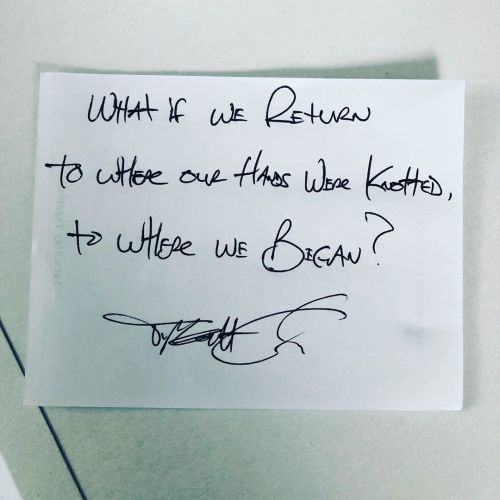 What if we Return
to where our Hands Were Knotted,
to where we Began?